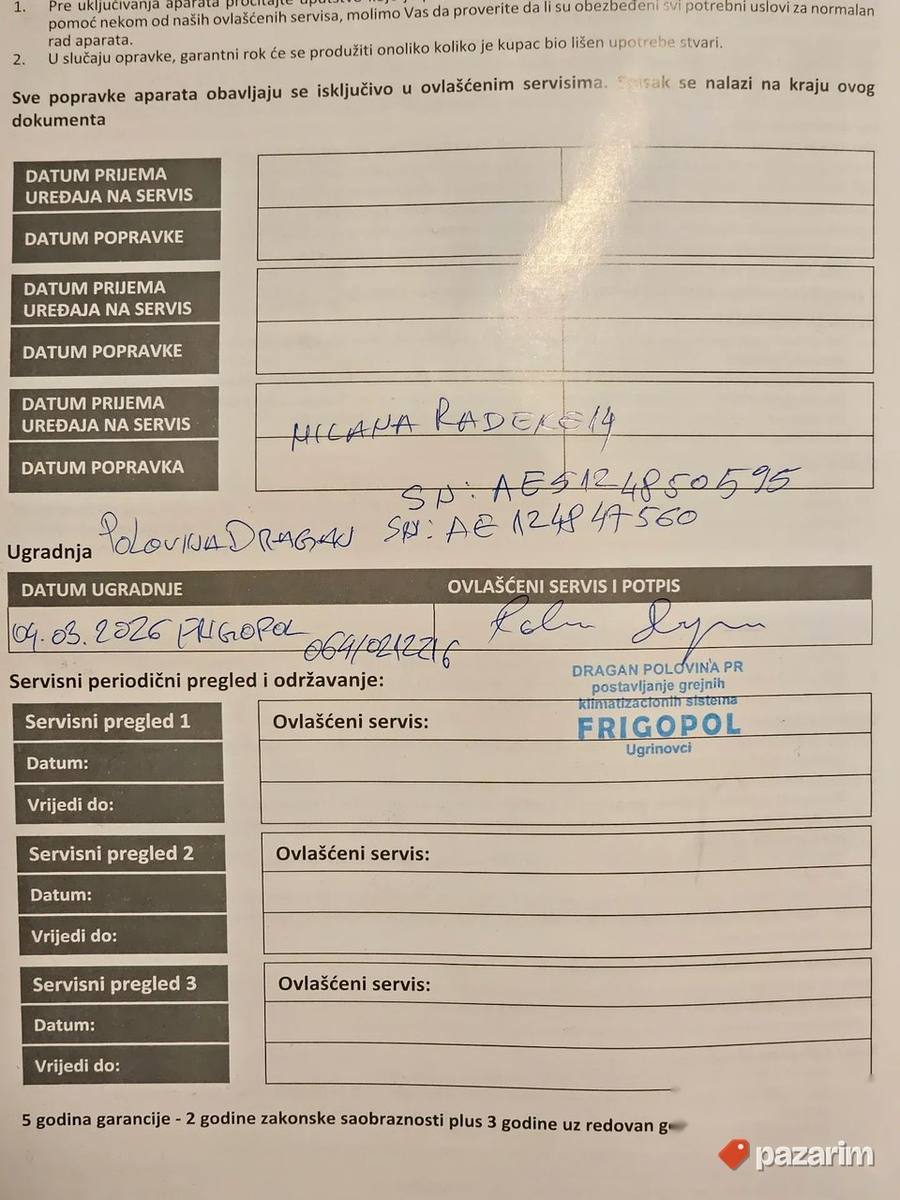 1. Pre uključivanja aparata pročitajte
pomoć nekom od naših ovlašćenih servisa, molimo Vas da proverite da li su obezbeđeni svi potrebni uslovi za normalan
rad aparata.
2. U slučaju opravke, garantni rok će se produžiti onoliko koliko je kupac bio lišen upotrebe stvari.
Sve popravke aparata obavljaju se isključivo u ovlašćenim servisima. Spisak se nalazi na kraju ovog
dokumenta
DATUM PRIJEMA
UREĐAJA NA SERVIS
DATUM POPRAVKE
DATUM PRIJEMA
UREĐAJA NA SERVIS
DATUM POPRAVKE
DATUM PRIJEMA
UREĐAJA NA SERVIS
MILANA RADEKE 14
DATUM POPRAVKA
SN: AE5124850595
Ugradnja POLOVINA DRAGAN SN: AE124847560
DATUM UGRADNJE OVLAŠĆENI SERVIS I POTPIS
09.03.2026 FRIGOPOL 064/0212216
Servisni periodični pregled i održavanje:
DRAGAN POLOVINA PR
postavljanje grejnih
klimatizacionih sistema
FRIGOPOL
Ugrinovci
Servisni pregled 1 Ovlašćeni servis:
Datum:
Vrijedi do:
Servisni pregled 2 Ovlašćeni servis:
Datum:
Vrijedi do:
Servisni pregled 3 Ovlašćeni servis:
Datum:
Vrijedi do:
5 godina garancije - 2 godine zakonske saobraznosti plus 3 godine uz redovan
pazarim